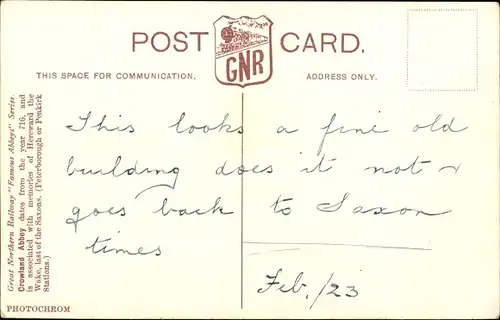 POST CARD.
GNR
THIS SPACE FOR COMMUNICATION.
ADDRESS ONLY.
This looks a fine old
building does it not &
goes back to Saxon
times
Feb. /23
Great Northern Railway "Famous Abbeys" Series.
Crowland Abbey dates from the year 716, and
is associated with memories of Hereward the
Wake, last of the Saxons. (Peterborough or Peakirk
Stations.)
PHOTOCHROM